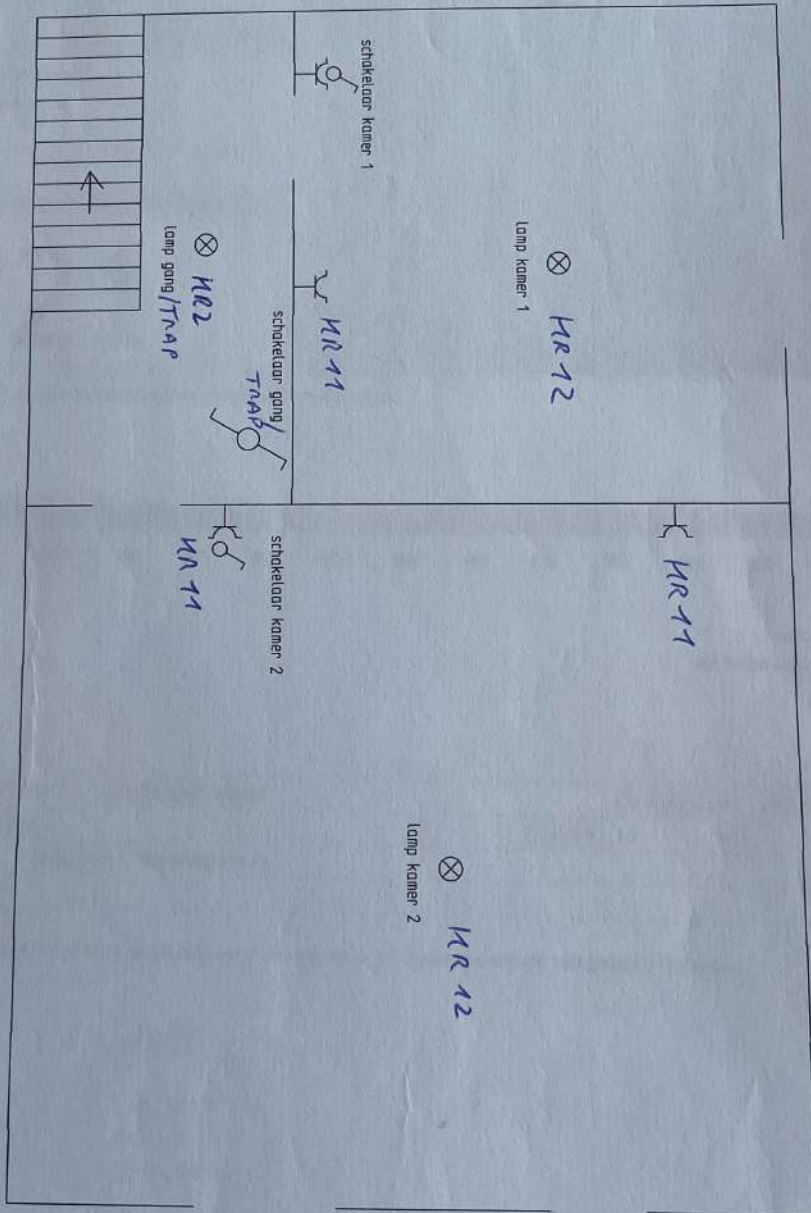 schakelaar kamer 1
lamp kamer 1
KR 12
KR2
lamp gang/TRAP
KR 11
schakelaar gang/
TRAP
KR 11
schakelaar kamer 2
KR 11
lamp kamer 2
KR 12